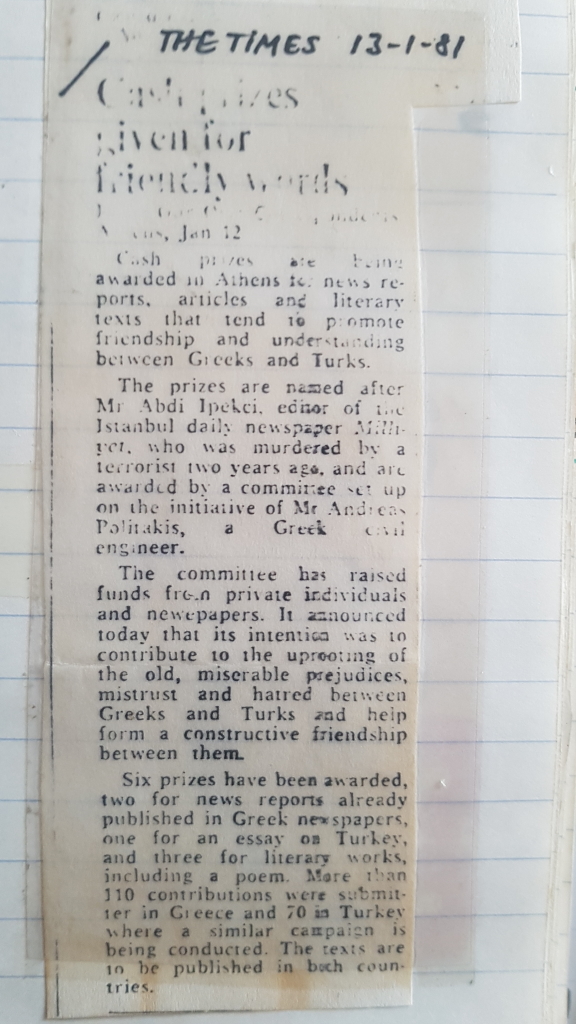 THE TIMES 13-1-81
Cash prizes
given for
friendly words
Jan 12
Cash prizes are being
awarded in Athens for news re-
ports, articles and literary
texts that tend to promote
friendship and understanding
between Greeks and Turks.
The prizes are named after
Mr Abdi Ipekci, editor of the
Istanbul daily newspaper Milli-
yet, who was murdered by a
terrorist two years ago, and are
awarded by a committee set up
on the initiative of Mr Andreas
Politakis, a Greek civil
engineer.
The committee has raised
funds from private individuals
and newepapers. It announced
today that its intention was to
contribute to the uprooting of
the old, miserable prejudices,
mistrust and hatred between
Greeks and Turks and help
form a constructive friendship
between them.
Six prizes have been awarded,
two for news reports already
published in Greek newspapers,
one for an essay on Turkey,
and three for literary works,
including a poem. More than
110 contributions were submit-
ter in Greece and 70 in Turkey
where a similar campaign is
being conducted. The texts are
to be published in both coun-
tries.